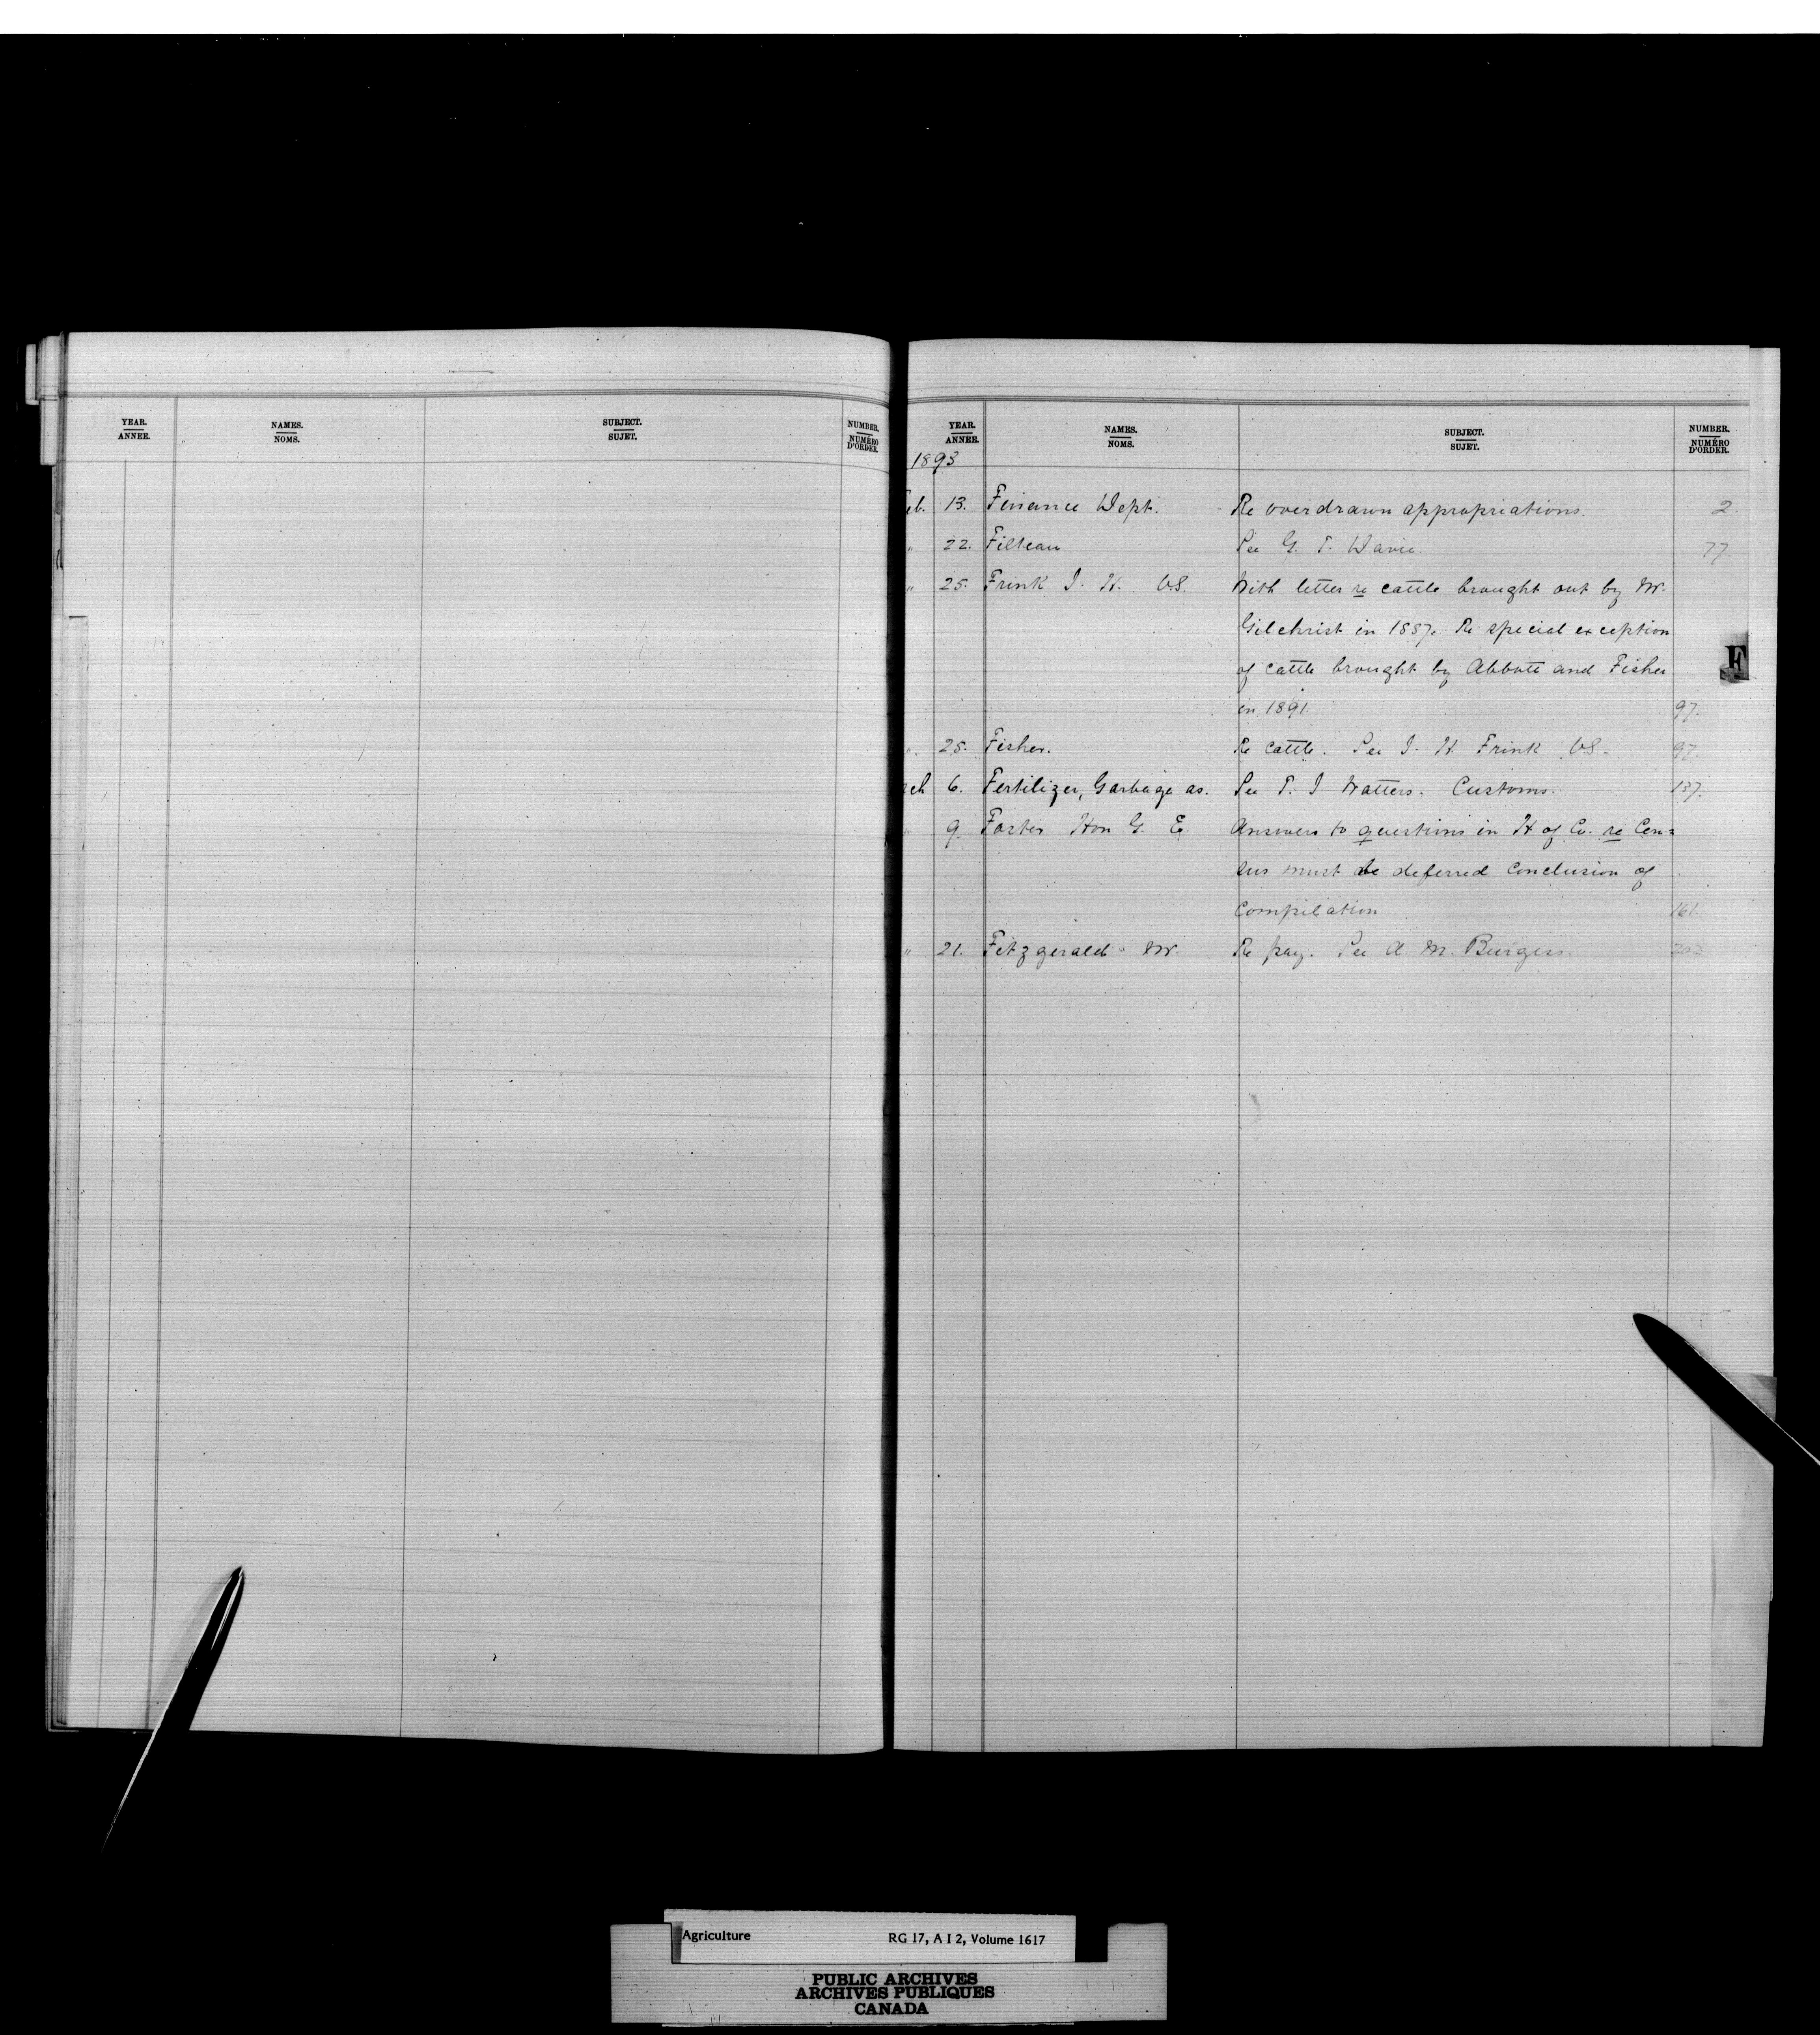 YEAR. NAMES. SUBJECT. NUMBER.
ANNEE. NOMS. SUJET. NUMÉRO D'ORDER.
YEAR. NAMES. SUBJECT. NUMBER.
ANNEE. NOMS. SUJET. NUMÉRO D'ORDER.
1893
eb. 13. Finance Dept. Re overdrawn appropriations. 2.
" 22. Filteau See G. T. Davie. 77
" 25. Frink J. H. V.S. With letter re cattle brought out by Mr.
Gilchrist in 1887. Re special exception
of cattle brought by Abbott and Fisher
in 1891. 97.
". 25. Fisher. Re cattle. See J. H. Frink V.S. 97.
ch 6. Fertilizer, Garbage as. See T. J Watters. Customs. 137.
" 9. Foster Hon G. E. Answers to questions in H of Co. re Cen=
sus must be deferred conclusion of
compilation 161.
" 21. Fitzgerald Mr. Re pay. See A M. Burgess. 202
F
Agriculture RG 17, A I 2, Volume 1617
PUBLIC ARCHIVES
ARCHIVES PUBLIQUES
CANADA